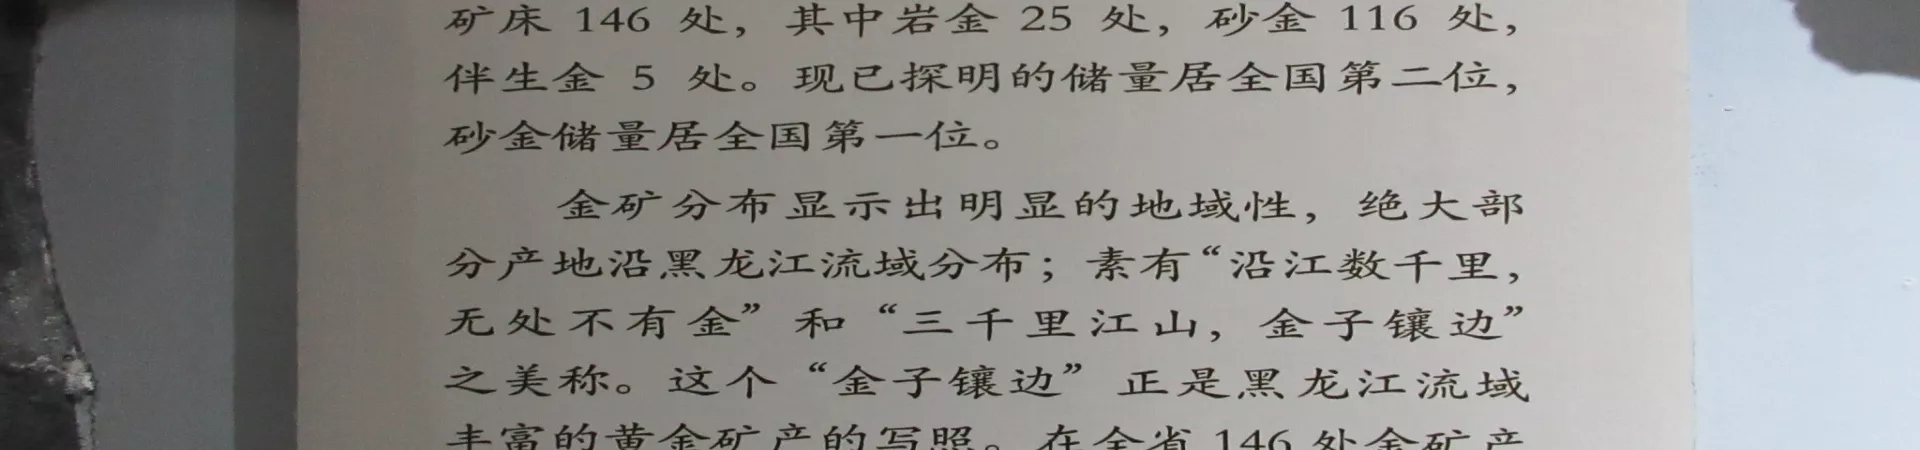 矿床 146 处，其中岩金 25 处，砂金 116 处，
伴生金 5 处。现已探明的储量居全国第二位，
砂金储量居全国第一位。
金矿分布显示出明显的地域性，绝大部
分产地沿黑龙江流域分布；素有“沿江数千里，
无处不有金”和“三千里江山，金子镶边”
之美称。这个“金子镶边”正是黑龙江流域
丰富的黄金矿产的写照。在全省 146 处金矿产